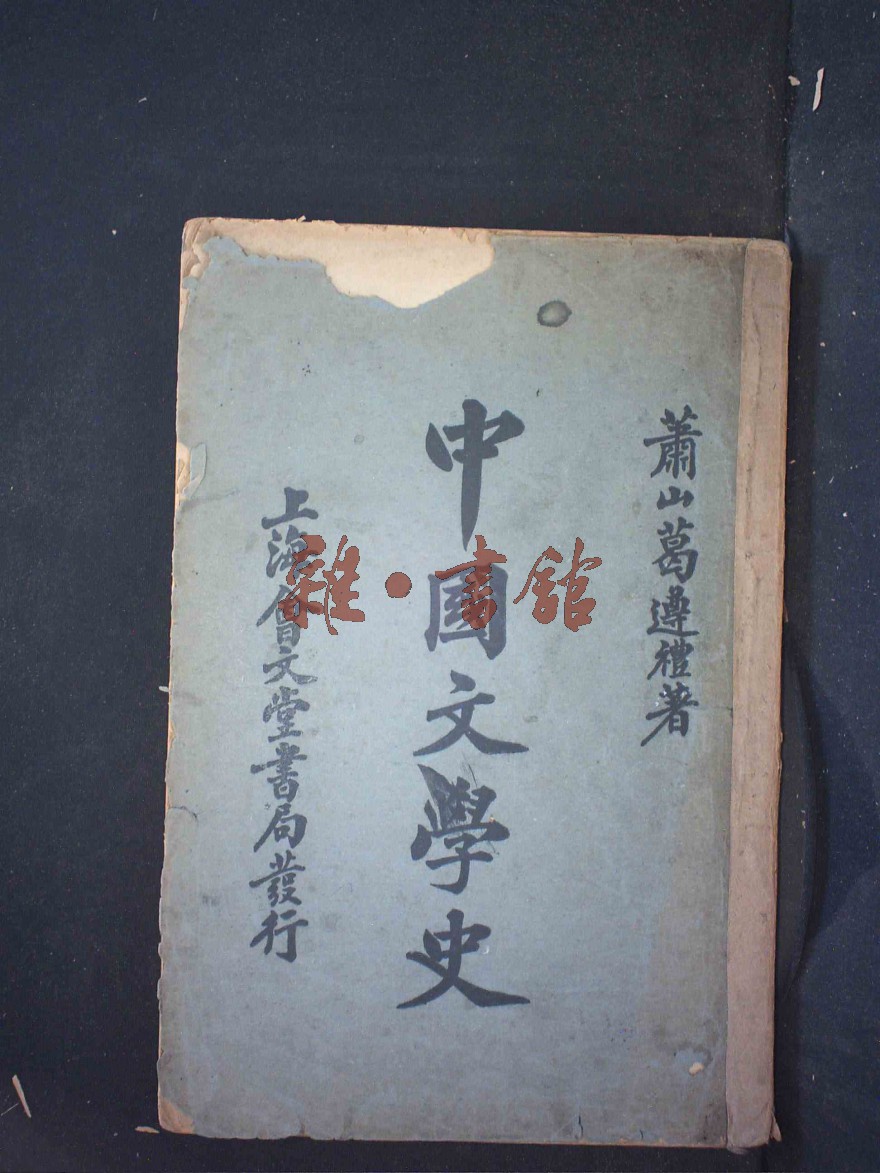 蕭山葛遵禮著
中國文學史
上海會文堂書局發行
雜·書館